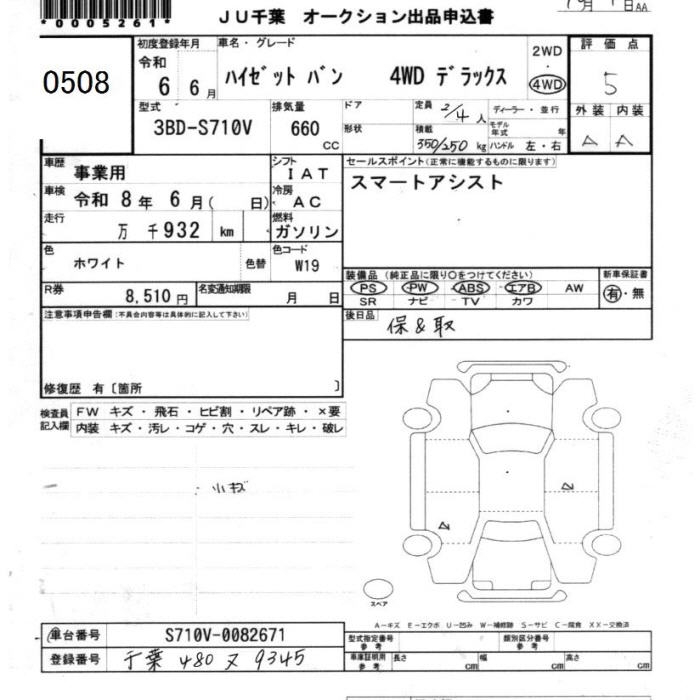 *0005261*
JU千葉 オークション出品申込書
月 日AA
0508
初度登録年月
令和
6 6月
車名・グレード
ハイゼット バン 4WD デラックス
2WD
4WD
評価点
5
型式
3BD-S710V
排気量
660
CC
ドア
形状
定員 2/4人
積載 350/250 kg
ディーラー・並行
モデル年式 年
ハンドル 左・右
外装 内装
A A
車歴
事業用
シフト
IAT
セールスポイント(正常に機能するものに限ります)
スマートアシスト
車検
令和 8年 6月( 日)
冷房
AC
走行
万 千932 km
燃料
ガソリン
色
ホワイト
色替
色コード
W19
装備品(純正品に限り○をつけてください)
PS PW ABS エアB AW
SR ナビ TV カワ
新車保証書
有・無
R券
8,510円
名変通知期限
月 日
後日品
保&取
注意事項申告欄(不具合内容等は具体的に記入して下さい)
修復歴 有〔箇所 〕
検査員
記入欄
FW キズ・飛石・ヒビ割・リペア跡・×要
内装 キズ・汚レ・コゲ・穴・スレ・キレ・破レ
小キズ
A
A
スペア
A-キズ E-エクボ U-凹み W-補修跡 S-サビ C-腐食 XX-交換済
車台番号
S710V-0082671
登録番号
千葉 480 又 9345
型式指定番号
参考
類別区分番号
参考
車庫証明用
参考
長さ cm
幅 cm
高さ cm